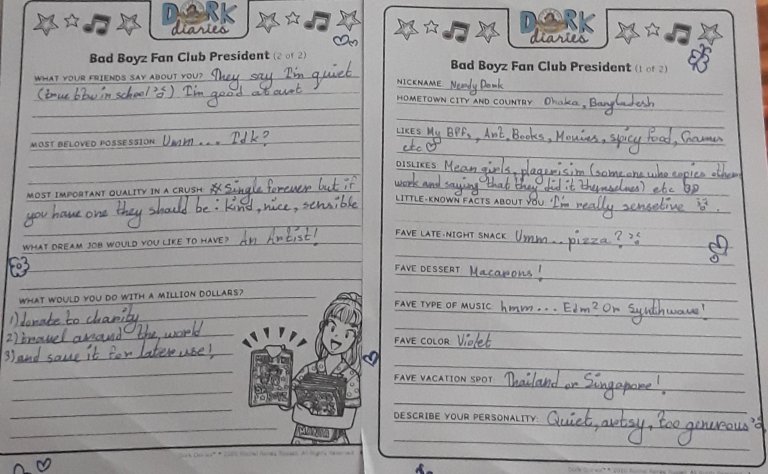 DORK
diaries
Bad Boyz Fan Club President (2 of 2)
WHAT YOUR FRIENDS SAY ABOUT YOU? They say I'm quiet
(true btw in school) I'm good at art
MOST BELOVED POSSESSION: Umm... Idk?
MOST IMPORTANT QUALITY IN A CRUSH: Single forever but if
you have one they should be: kind, nice, sensible
WHAT DREAM JOB WOULD YOU LIKE TO HAVE? An Artist!
WHAT WOULD YOU DO WITH A MILLION DOLLARS?
1) donate to charity
2) travel around the world
3) and save it for later use!
DORK
diaries
Bad Boyz Fan Club President (1 of 2)
NICKNAME: Nerdy Dork
HOMETOWN CITY AND COUNTRY: Dhaka, Bangladesh
LIKES: My BFFs, Art, Books, Movies, spicy food, Games
etc
DISLIKES: Mean girls, plagerisim (someone who copies others
work and saying that they did it themselves) etc
LITTLE-KNOWN FACTS ABOUT YOU: I'm really sensetive
FAVE LATE-NIGHT SNACK: Umm.. pizza?
FAVE DESSERT: Macarons!
FAVE TYPE OF MUSIC: hmm... Edm? Or Synthwave!
FAVE COLOR: Violet
FAVE VACATION SPOT: Thailand or Singapore!
DESCRIBE YOUR PERSONALITY: Quiet, artsy, too generous